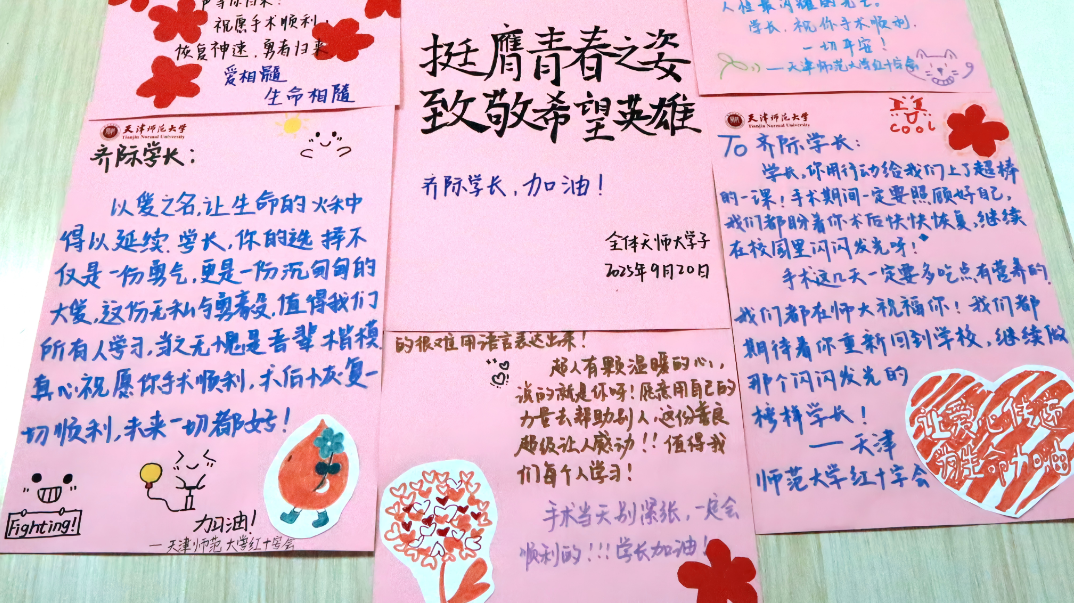 声等你归来！
祝愿手术顺利，
恢复神速，勇者归来
爱相髓
生命相随
挺膺青春之姿
致敬希望英雄
齐际学长，加油！
全体天师大学子
2025年9月20日
人性最闪耀的光芒。
学长，祝你手术顺利.
一切平安！
—天津师范大学红十字会
天津师范大学
Tianjin Normal University
齐际学长：
以爱之名，让生命的火种
得以延续.学长，你的选择不
仅是一份勇气，更是一份沉甸甸的
大爱，这份无私与勇毅，值得我们
所有人学习，当之无愧是吾辈楷模
真心祝愿你手术顺利，术后恢复一
切顺利，未来一切都好！
Fighting!
加油！
—天津师范大学红十字会
的很难用语言表达出来！
超人有颗温暖的心，
说的就是你呀！愿意用自己的
力量去帮助别人，这份善良
超级让人感动！！值得我
们每个人学习！
手术当天别紧张，一定会
顺利的！！！学长加油！
天津师范大学
Tianjin Normal University
COOL
To 齐际学长：
学长，你用行动给我们上了超棒
的一课！手术期间一定要照顾好自己，
我们都盼着你术后快快恢复，继续
在校园里闪闪发光呀！
手术这几天一定要多吃点有营养的，
我们都在师大祝福你！我们都
期待着你重新回到学校，继续做
那个闪闪发光的
榜样学长！
——天津
师范大学红十字会
让爱心传递
为生命加油